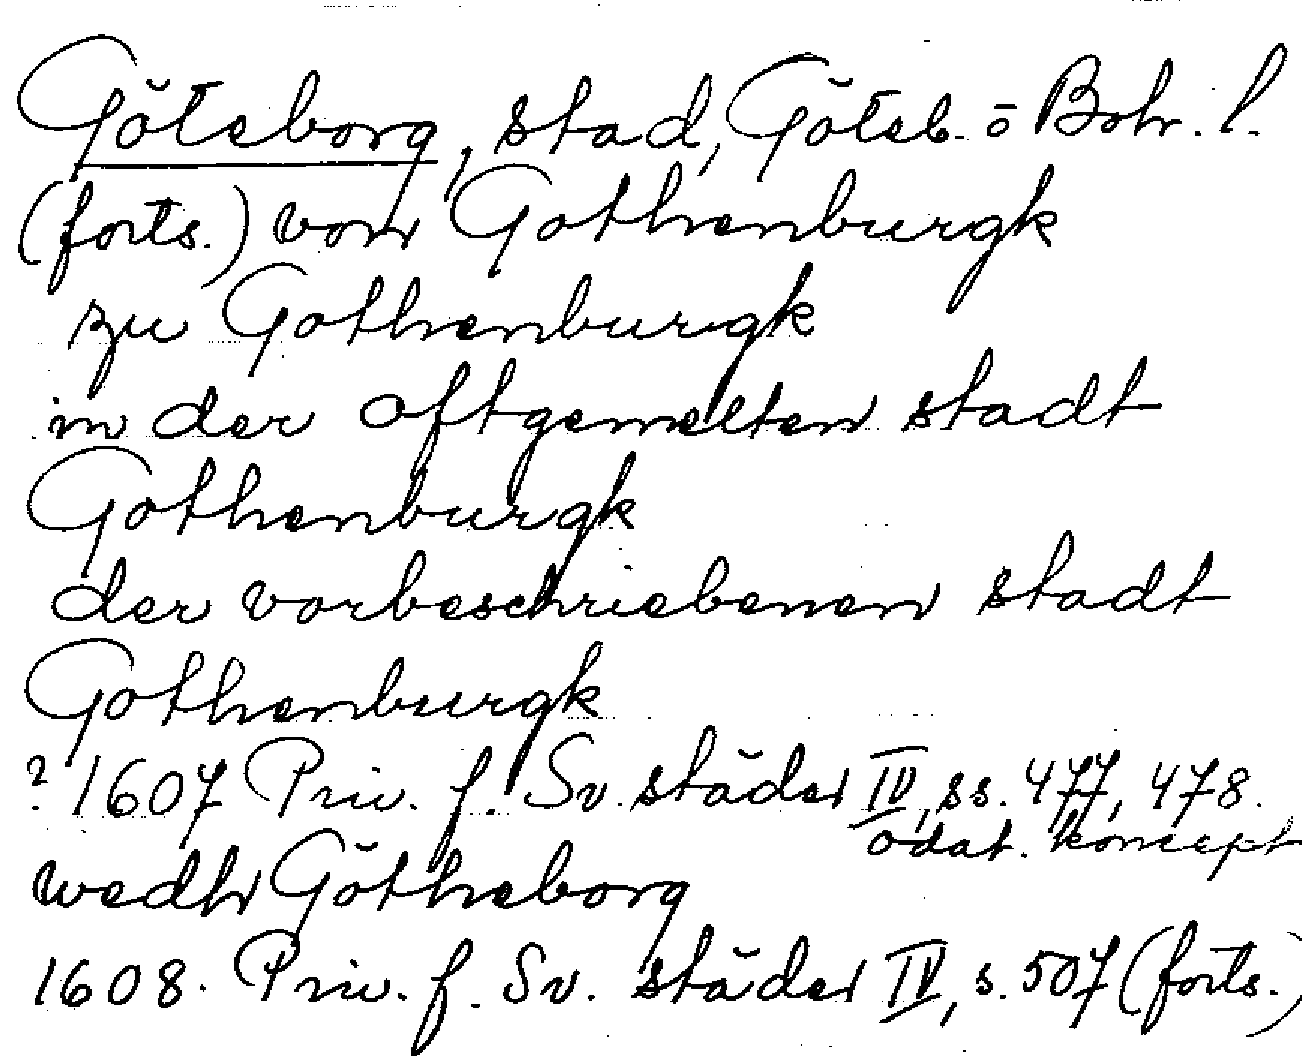 Göteborg, stad, Göteb. o Boh. l.
(forts.) von Gothenburgk
zu Gothenburgk
in der oftgemelten stadt
Gothenburgk
der vorbeschriebenen stadt
Gothenburgk
? 1607 Priv. f. Sv. städer IV, ss. 477, 478.
odat. koncept
wedh Götheborg
1608. Priv. f. Sv. städer IV, s. 507 (forts.)